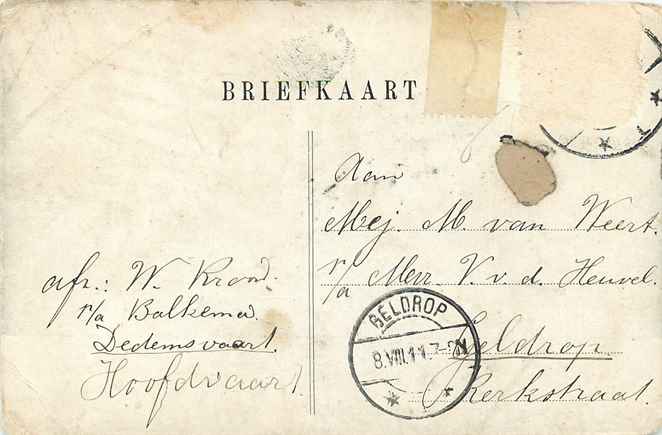 BRIEFKAART
Aan
Mej. M. van Weert.
p/a Mevr. V. v. d. Heuvel.
Geldrop.
Kerkstraat.
GELDROP
8.VIII.11.7-8N
afz.: W. Kroon.
p/a Balkema
Dedemsvaart.
Hoofdvaart.